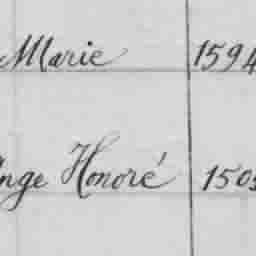 Marie 1594
Ange Honoré 150